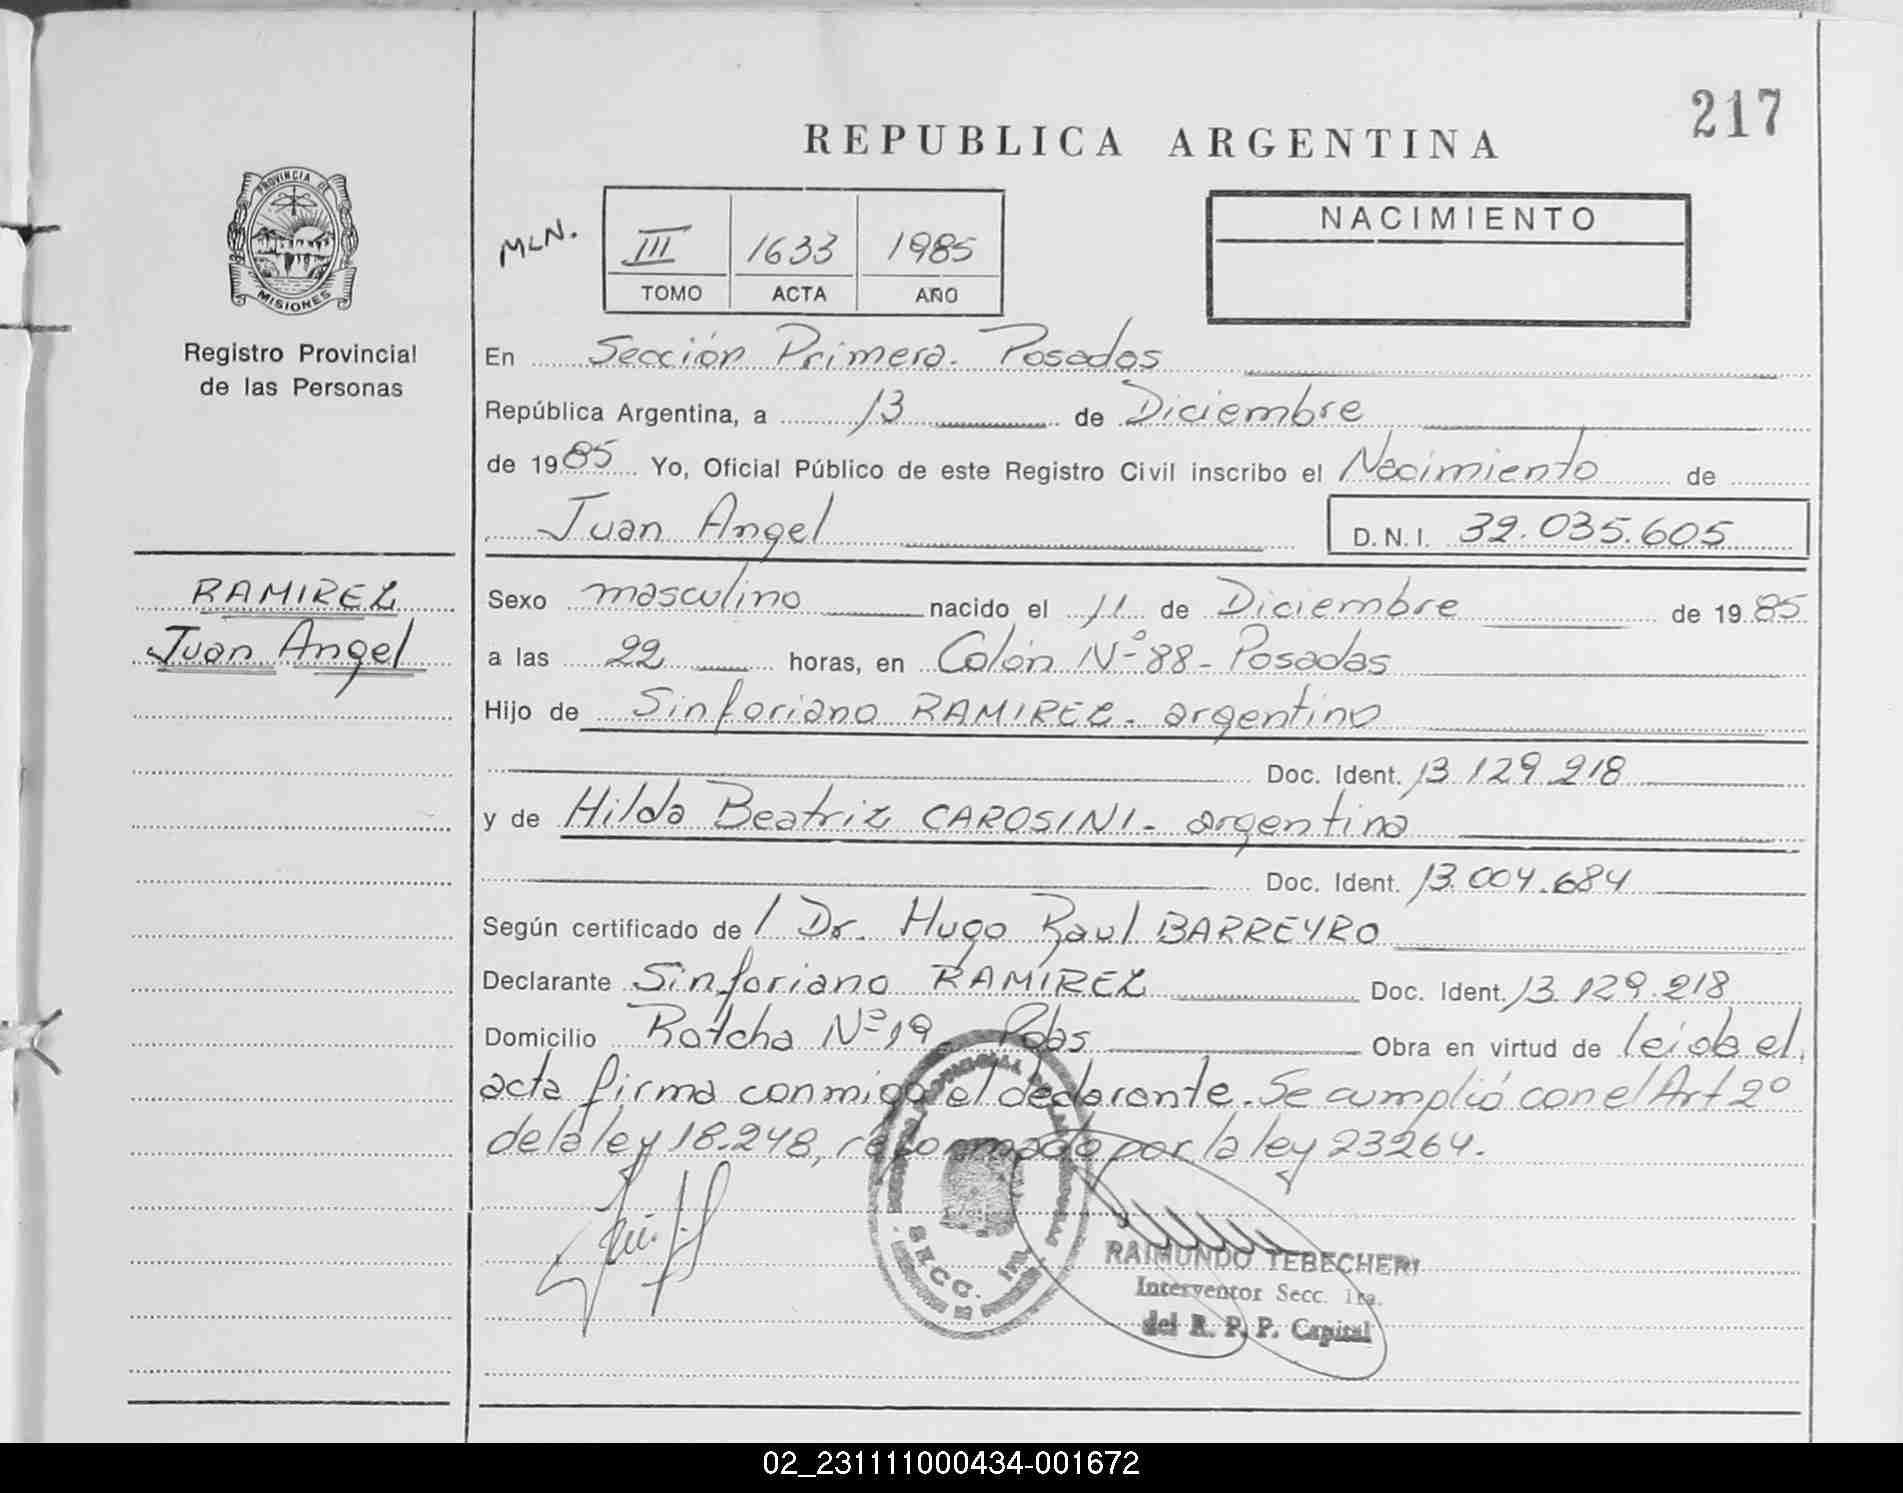 217
REPUBLICA ARGENTINA
PROVINCIA DE
MISIONES
Registro Provincial
de las Personas
MLN.
III 1633 1985
TOMO ACTA AÑO
NACIMIENTO
En Sección Primera. Posadas
República Argentina, a 13 de Diciembre
de 1985 Yo, Oficial Público de este Registro Civil inscribo el Nacimiento de
Juan Angel D.N.I. 32.035.605
RAMIREZ
Juan Angel
Sexo masculino nacido el 11 de Diciembre de 1985
a las 22 horas, en Colón Nº 88 - Posadas
Hijo de Sinforiano RAMIREZ - argentino
Doc. Ident. 13.129.218
y de Hilda Beatriz CAROSINI - argentina
Doc. Ident. 13.004.684
Según certificado de / Dr. Hugo Raul BARREYRO
Declarante Sinforiano RAMIREZ Doc. Ident. 13.129.218
Domicilio Rotcha Nº 19 Pdas Obra en virtud de leida el
acta firma conmigo el declarante. Se cumplió con el Art 2º
de la ley 18.248, reformado por la ley 23264.
SECC. 1ra.
RAIMUNDO TEBECHERI
Interventor Secc. 1ra.
del R. P. P. Capital
02_231111000434-001672